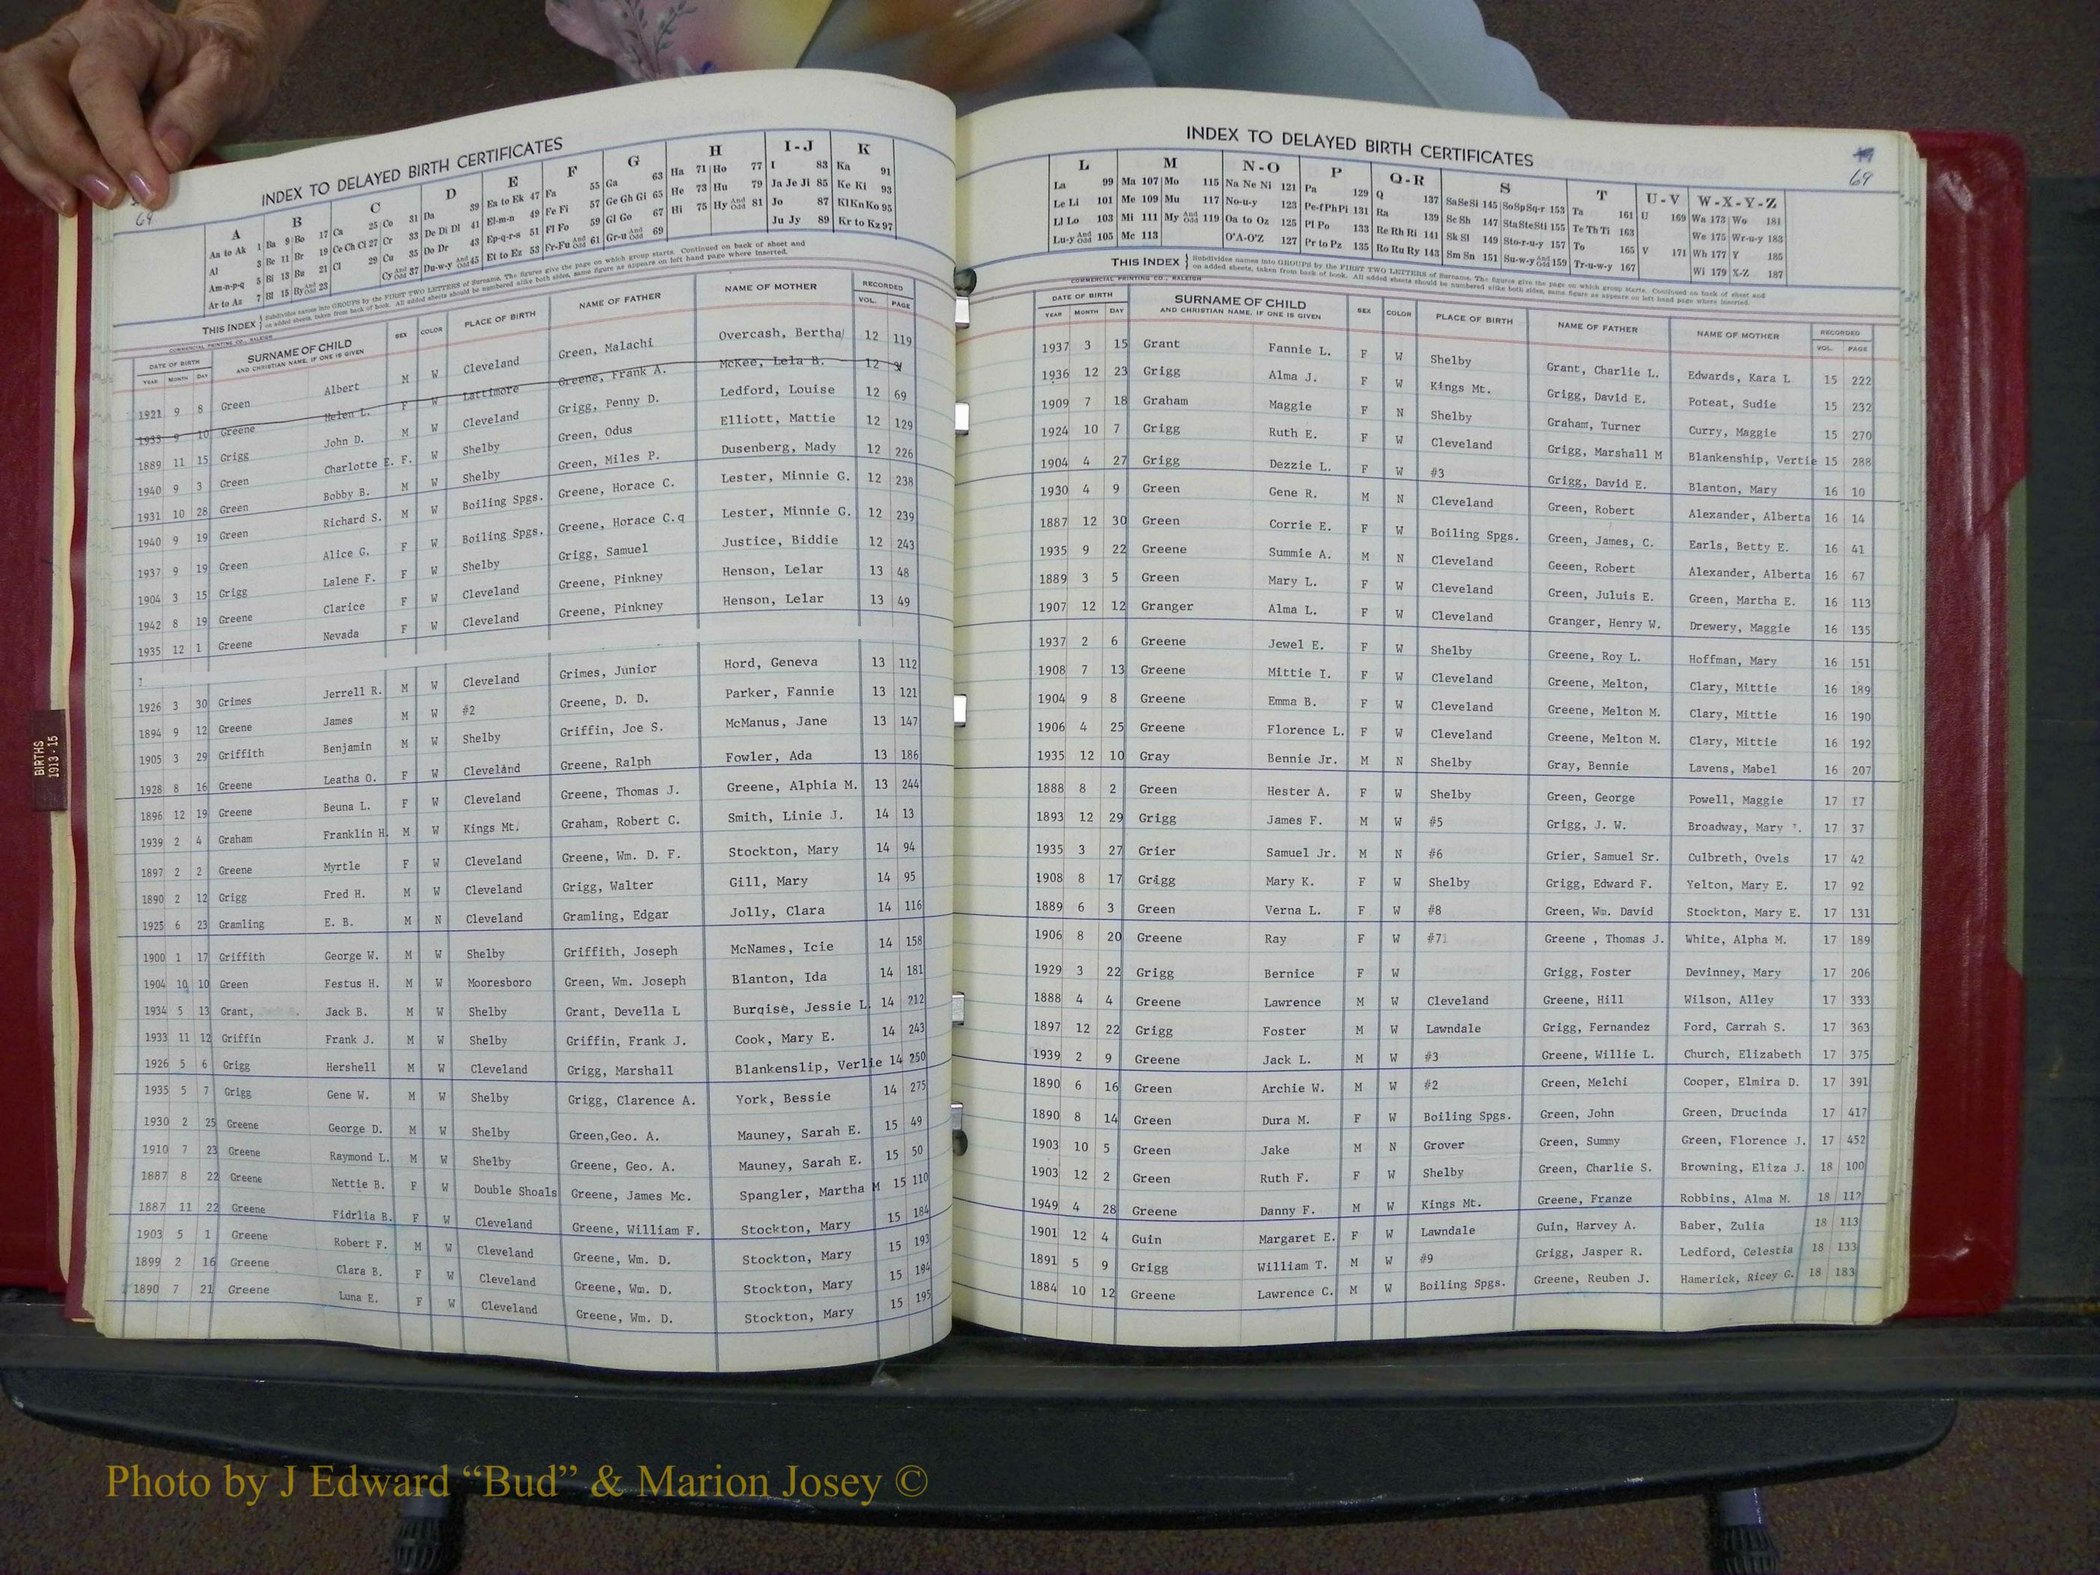 INDEX TO DELAYED BIRTH CERTIFICATES
69
A B C D E F G H I-J K
Aa to Ak 1 Ba 9 Bo 17 Ca 25 Co 31 Da 39 Ea to Ek 47 Fa 55 Ga 63 Ha 71 Ho 77 I 83 Ka 91
Al 3 Be 11 Br 19 Ce Ch Ci 27 Cr 33 De Di Dl 41 El-m-n 49 Fe Fi 57 Ge Gh Gi 65 He 73 Hu 79 Ja Je Ji 85 Ke Ki 93
Am-n-p-q 5 Bi 13 Bu 21 Cl 29 Cu 35 Do Dr 43 Ep-q-r-s 51 Fl Fo 59 Gl Go 67 Hi 75 Hy And Odd 81 Jo 87 Kl Kn Ko 95
Ar to Az 7 Bl 15 By And Odd 23 Cy And Odd 37 Du-w-y And Odd 45 Et to Ez 53 Fr-Fu And Odd 61 Gr-u And Odd 69 Ju Jy 89 Kr to Kz 97
THIS INDEX } Subdivides names into GROUPS by the FIRST TWO LETTERS of Surname. The figures give the page on which group starts. Continued on back of sheet and
on added sheets, taken from back of book. All added sheets should be numbered alike both sides, same figure as appears on left hand page where inserted.
COMMERCIAL PRINTING CO., RALEIGH
DATE OF BIRTH SURNAME OF CHILD SEX COLOR PLACE OF BIRTH NAME OF FATHER NAME OF MOTHER RECORDED
YEAR MONTH DAY AND CHRISTIAN NAME, IF ONE IS GIVEN VOL. PAGE
1921 9 8 Green Albert M W Cleveland Green, Malachi Overcash, Bertha 12 119
1933 9 10 Greene Helen L. F W Lattimore Greene, Frank A. McKee, Lela B. 12
1889 11 15 Grigg John D. M W Cleveland Grigg, Penny D. Ledford, Louise 12 69
1940 9 3 Green Charlotte E. F. W Shelby Green, Odus Elliott, Mattie 12 129
1931 10 28 Green Bobby B. M W Shelby Green, Miles P. Dusenberg, Mady 12 226
1940 9 19 Green Richard S. M W Boiling Spgs. Greene, Horace C. Lester, Minnie G. 12 238
1937 9 19 Green Alice G. F W Boiling Spgs. Greene, Horace C.q Lester, Minnie G. 12 239
1904 3 15 Grigg Lalene F. F W Shelby Grigg, Samuel Justice, Biddie 12 243
1942 8 19 Greene Clarice F W Cleveland Greene, Pinkney Henson, Lelar 13 48
1935 12 1 Greene Nevada F W Cleveland Greene, Pinkney Henson, Lelar 13 49
1926 3 30 Grimes Jerrell R. M W Cleveland Grimes, Junior Hord, Geneva 13 112
1894 9 12 Greene James M W #2 Greene, D. D. Parker, Fannie 13 121
1905 3 29 Griffith Benjamin M W Shelby Griffin, Joe S. McManus, Jane 13 147
1928 8 16 Greene Leatha O. F W Cleveland Greene, Ralph Fowler, Ada 13 186
1896 12 19 Greene Beuna L. F W Cleveland Greene, Thomas J. Greene, Alphia M. 13 244
1939 2 4 Graham Franklin H. M W Kings Mt. Graham, Robert C. Smith, Linie J. 14 13
1897 2 2 Greene Myrtle F W Cleveland Greene, Wm. D. F. Stockton, Mary 14 94
1890 2 12 Grigg Fred H. M W Cleveland Grigg, Walter Gill, Mary 14 95
1925 6 23 Gramling E. B. M N Cleveland Gramling, Edgar Jolly, Clara 14 116
1900 1 17 Griffith George W. M W Shelby Griffith, Joseph McNames, Icie 14 158
1904 10 10 Green Festus H. M W Mooresboro Green, Wm. Joseph Blanton, Ida 14 181
1934 5 13 Grant, Jack B. M W Shelby Grant, Devella L Burqise, Jessie L. 14 212
1933 11 12 Griffin Frank J. M W Shelby Griffin, Frank J. Cook, Mary E. 14 243
1926 5 6 Grigg Hershell M W Cleveland Grigg, Marshall Blankenslip, Verlie 14 250
1935 5 7 Grigg Gene W. M W Shelby Grigg, Clarence A. York, Bessie 14 275
1930 2 25 Greene George D. M W Shelby Green,Geo. A. Mauney, Sarah E. 15 49
1910 7 23 Greene Raymond L. M W Shelby Greene, Geo. A. Mauney, Sarah E. 15 50
1887 8 22 Greene Nettie B. F W Double Shoals Greene, James Mc. Spangler, Martha M 15 110
1887 11 22 Greene Fidrlia B. F W Cleveland Greene, William F. Stockton, Mary 15 184
1903 5 1 Greene Robert F. M W Cleveland Greene, Wm. D. Stockton, Mary 15 193
1899 2 16 Greene Clara B. F W Cleveland Greene, Wm. D. Stockton, Mary 15 194
1890 7 21 Greene Luna E. F W Cleveland Greene, Wm. D. Stockton, Mary 15 195
INDEX TO DELAYED BIRTH CERTIFICATES
69
L M N-O P Q-R S T U-V W-X-Y-Z
La 99 Ma 107 Mo 115 Na Ne Ni 121 Pa 129 Q 137 Sa Se Si 145 So Sp Sq-r 153 Ta 161 U 169 Wa 173 Wo 181
Le Li 101 Me 109 Mu 117 No-u-y 123 Pe-f Ph Pi 131 Ra 139 Sc Sh 147 Sta Ste Sti 155 Te Th Ti 163 We 175 Wr-u-y 183
Ll Lo 103 Mi 111 My And Odd 119 Oa to Oz 125 Pl Po 133 Re Rh Ri 141 Sk Sl 149 Sto-r-u-y 157 To 165 V 171 Wh 177 Y 185
Lu-y And Odd 105 Mc 113 O'A-O'Z 127 Pr to Pz 135 Ro Ru Ry 143 Sm Sn 151 Su-w-y And Odd 159 Tr-u-w-y 167 Wi 179 X-Z 187
THIS INDEX } Subdivides names into GROUPS by the FIRST TWO LETTERS of Surname. The figures give the page on which group starts. Continued on back of sheet and
on added sheets, taken from back of book. All added sheets should be numbered alike both sides, same figure as appears on left hand page where inserted.
COMMERCIAL PRINTING CO., RALEIGH
DATE OF BIRTH SURNAME OF CHILD SEX COLOR PLACE OF BIRTH NAME OF FATHER NAME OF MOTHER RECORDED
YEAR MONTH DAY AND CHRISTIAN NAME, IF ONE IS GIVEN VOL. PAGE
1937 3 15 Grant Fannie L. F W Shelby Grant, Charlie L. Edwards, Kara L 15 222
1936 12 23 Grigg Alma J. F W Kings Mt. Grigg, David E. Poteat, Sudie 15 232
1909 7 18 Graham Maggie F N Shelby Graham, Turner Curry, Maggie 15 270
1924 10 7 Grigg Ruth E. F W Cleveland Grigg, Marshall M Blankenship, Vertie 15 288
1904 4 27 Grigg Dezzie L. F W #3 Grigg, David E. Blanton, Mary 16 10
1930 4 9 Green Gene R. M N Cleveland Green, Robert Alexander, Alberta 16 14
1887 12 30 Green Corrie E. F W Boiling Spgs. Green, James, C. Earls, Betty E. 16 41
1935 9 22 Greene Summie A. M N Cleveland Geeen, Robert Alexander, Alberta 16 67
1889 3 5 Green Mary L. F W Cleveland Green, Juluis E. Green, Martha E. 16 113
1907 12 12 Granger Alma L. F W Cleveland Granger, Henry W. Drewery, Maggie 16 135
1937 2 6 Greene Jewel E. F W Shelby Greene, Roy L. Hoffman, Mary 16 151
1908 7 13 Greene Mittie I. F W Cleveland Greene, Melton, Clary, Mittie 16 189
1904 9 8 Greene Emma B. F W Cleveland Greene, Melton M. Clary, Mittie 16 190
1906 4 25 Greene Florence L. F W Cleveland Greene, Melton M. Clary, Mittie 16 192
1935 12 10 Gray Bennie Jr. M N Shelby Gray, Bennie Lavens, Mabel 16 207
1888 8 2 Green Hester A. F W Shelby Green, George Powell, Maggie 17 17
1893 12 29 Grigg James F. M W #5 Grigg, J. W. Broadway, Mary 17 37
1935 3 27 Grier Samuel Jr. M N #6 Grier, Samuel Sr. Culbreth, Ovels 17 42
1908 8 17 Grigg Mary K. F W Shelby Grigg, Edward F. Yelton, Mary E. 17 92
1889 6 3 Green Verna L. F W #8 Green, Wm. David Stockton, Mary E. 17 131
1906 8 20 Greene Ray F W #7 Greene , Thomas J. White, Alpha M. 17 189
1929 3 22 Grigg Bernice F W Grigg, Foster Devinney, Mary 17 206
1888 4 4 Greene Lawrence M W Cleveland Greene, Hill Wilson, Alley 17 333
1897 12 22 Grigg Foster M W Lawndale Grigg, Fernandez Ford, Carrah S. 17 363
1939 2 9 Greene Jack L. M W #3 Greene, Willie L. Church, Elizabeth 17 375
1890 6 16 Green Archie W. M W #2 Green, Melchi Cooper, Elmira D. 17 391
1890 8 14 Green Dura M. F W Boiling Spgs. Green, John Green, Drucinda 17 417
1903 10 5 Green Jake M N Grover Green, Summy Green, Florence J. 17 452
1903 12 2 Green Ruth F. F W Shelby Green, Charlie S. Browning, Eliza J. 18 100
1949 4 28 Greene Danny F. M W Kings Mt. Greene, Franze Robbins, Alma M. 18 112
1901 12 4 Guin Margaret E. F W Lawndale Guin, Harvey A. Baber, Zulia 18 113
1891 5 9 Grigg William T. M W #9 Grigg, Jasper R. Ledford, Celestia 18 133
1884 10 12 Greene Lawrence C. M W Boiling Spgs. Greene, Reuben J. Hamerick, Ricey G. 18 183
BIRTHS
1913-15
Photo by J Edward “Bud” & Marion Josey ©